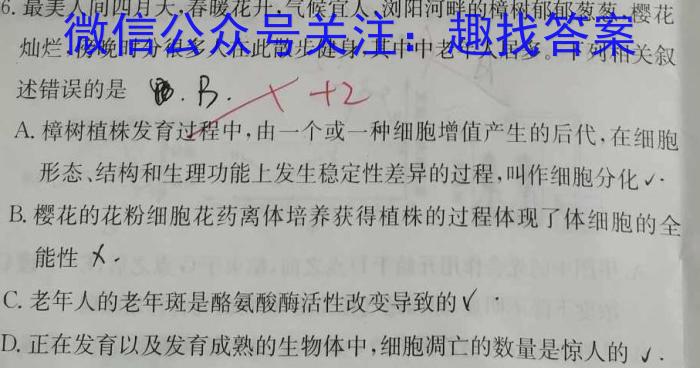 6. 最美人间四月天,春暖花开,气候宜人,浏阳河畔的樟树郁郁葱葱,樱花
微信公众号关注：趣找答案
灿烂,傍晚时分很多人在此散步健身,其中中老年人居多。下列相关叙
述错误的是 B. × +2
A. 樟树植株发育过程中,由一个或一种细胞增值产生的后代,在细胞
形态、结构和生理功能上发生稳定性差异的过程,叫作细胞分化 ✓.
B. 樱花的花粉细胞花药离体培养获得植株的过程体现了体细胞的全
能性 ✗.
C. 老年人的老年斑是酪氨酸酶活性改变导致的 ✓
D. 正在发育以及发育成熟的生物体中,细胞凋亡的数量是惊人的 ✓.